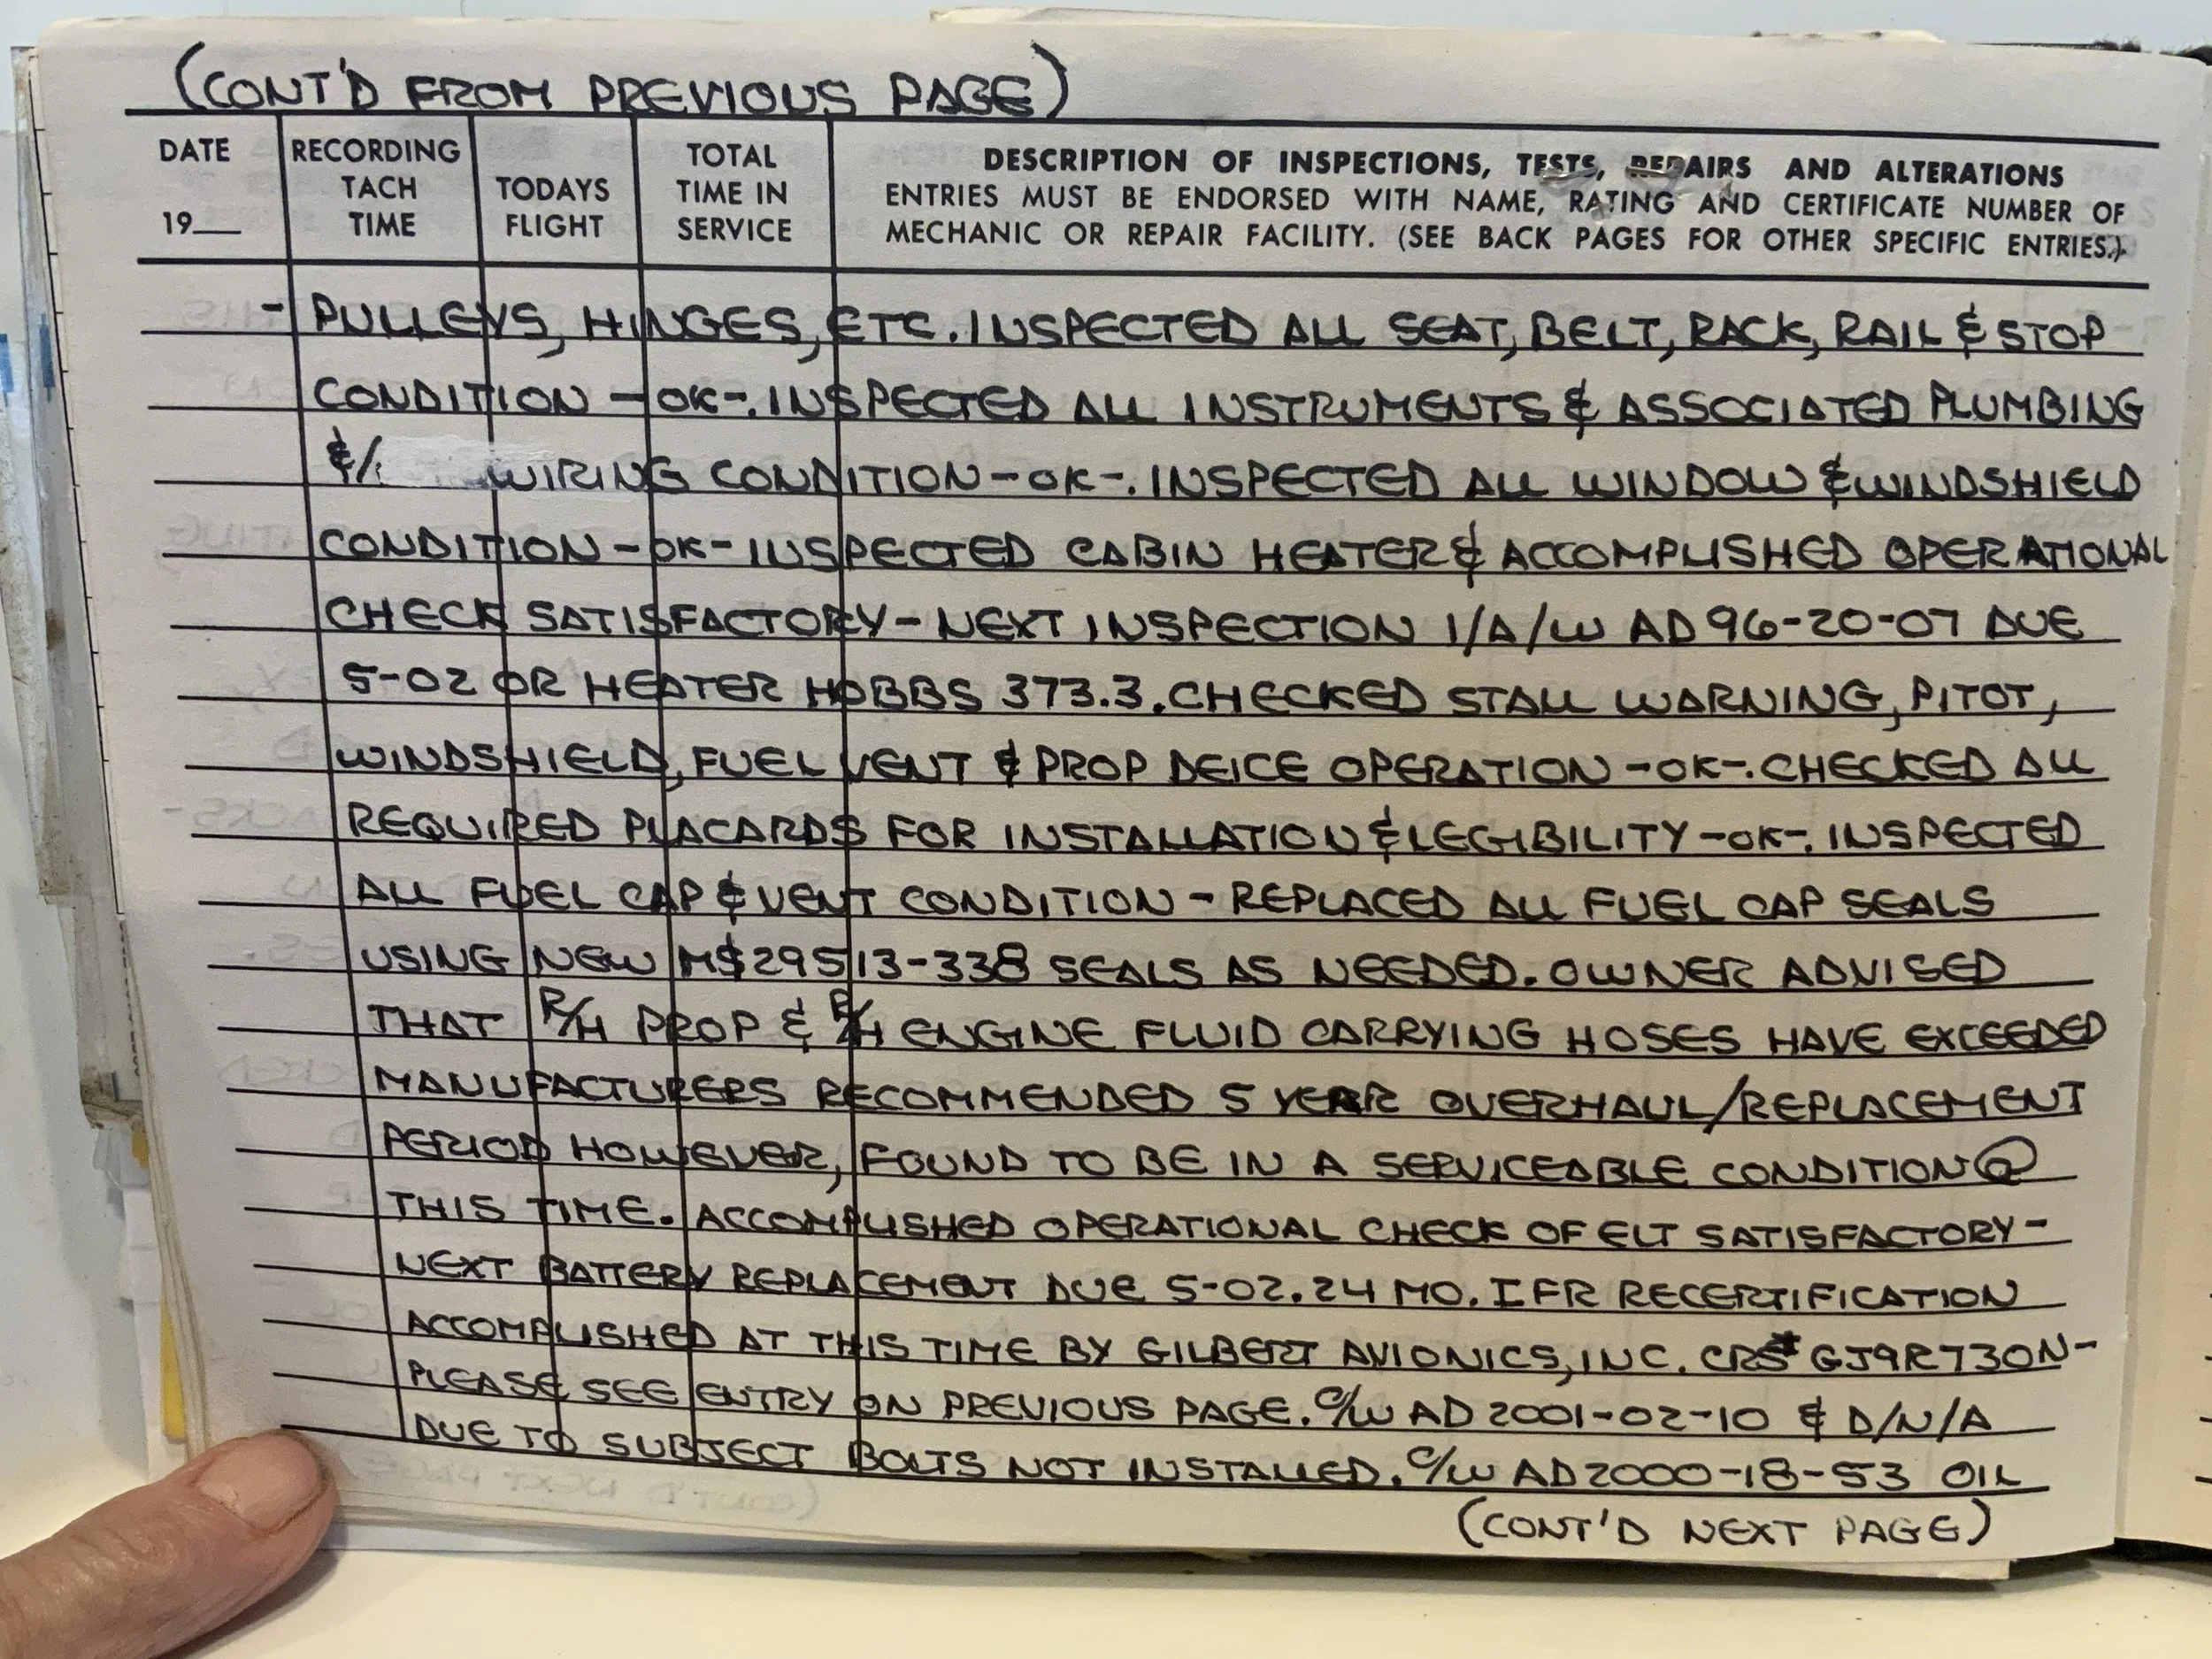 (CONT'D FROM PREVIOUS PAGE)
DATE
19__
RECORDING
TACH
TIME
TODAYS
FLIGHT
TOTAL
TIME IN
SERVICE
DESCRIPTION OF INSPECTIONS, TESTS, REPAIRS AND ALTERATIONS
ENTRIES MUST BE ENDORSED WITH NAME, RATING AND CERTIFICATE NUMBER OF
MECHANIC OR REPAIR FACILITY. (SEE BACK PAGES FOR OTHER SPECIFIC ENTRIES.)
- PULLEYS, HINGES, ETC. INSPECTED ALL SEAT, BELT, RACK, RAIL & STOP
CONDITION -OK-. INSPECTED ALL INSTRUMENTS & ASSOCIATED PLUMBING
&/ WIRING CONDITION -OK-. INSPECTED ALL WINDOW & WINDSHIELD
CONDITION -OK- INSPECTED CABIN HEATER & ACCOMPLISHED OPERATIONAL
CHECK SATISFACTORY - NEXT INSPECTION I/A/W AD 96-20-07 DUE
5-02 OR HEATER HOBBS 373.3. CHECKED STALL WARNING, PITOT,
WINDSHIELD, FUEL VENT & PROP DEICE OPERATION -OK-. CHECKED ALL
REQUIRED PLACARDS FOR INSTALLATION & LEGIBILITY -OK-. INSPECTED
ALL FUEL CAP & VENT CONDITION - REPLACED ALL FUEL CAP SEALS
USING NEW MS29513-338 SEALS AS NEEDED. OWNER ADVISED
THAT R/H PROP & R/H ENGINE FLUID CARRYING HOSES HAVE EXCEEDED
MANUFACTURERS RECOMMENDED 5 YEAR OVERHAUL/REPLACEMENT
PERIOD HOWEVER, FOUND TO BE IN A SERVICEABLE CONDITION @
THIS TIME. ACCOMPLISHED OPERATIONAL CHECK OF ELT SATISFACTORY -
NEXT BATTERY REPLACEMENT DUE 5-02. 24 MO. IFR RECERTIFICATION
ACCOMPLISHED AT THIS TIME BY GILBERT AVIONICS, INC. CRS# GJ9R730N-
PLEASE SEE ENTRY ON PREVIOUS PAGE. C/W AD 2001-02-10 & D/N/A
DUE TO SUBJECT BOLTS NOT INSTALLED. C/W AD 2000-18-53 OIL
(CONT'D NEXT PAGE)